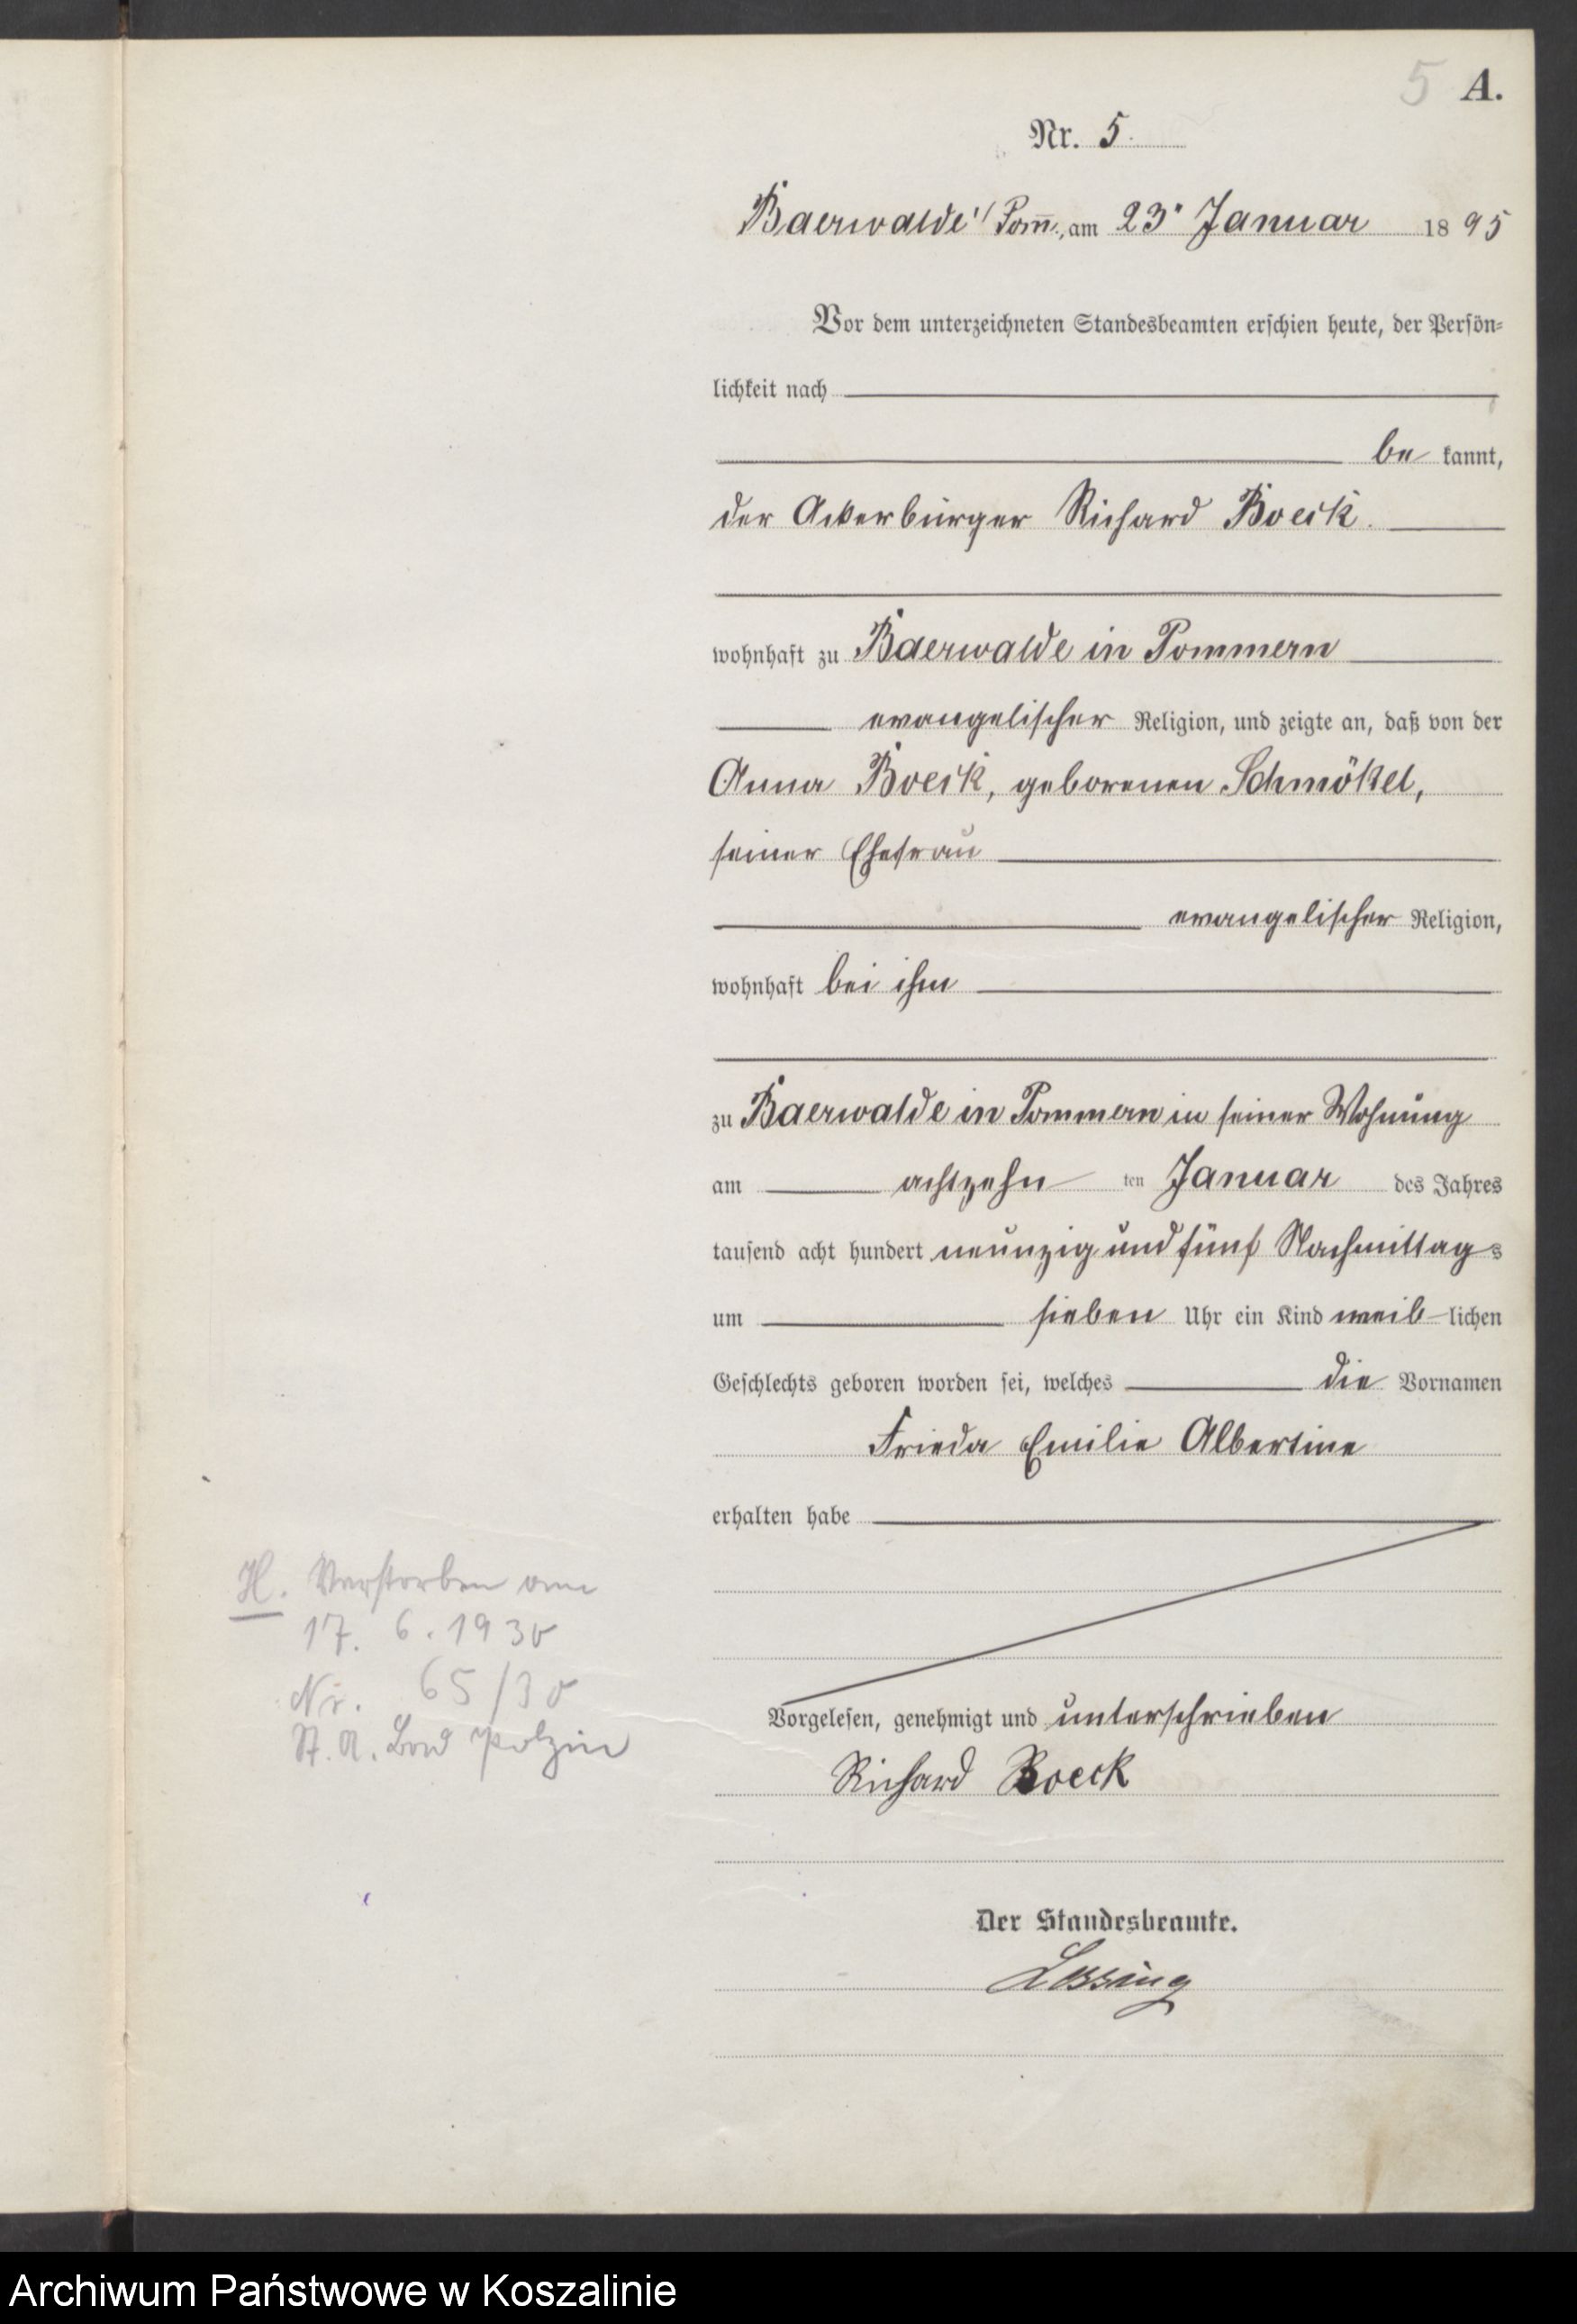 5 A.
Nr. 5.
Baerwalde i/ Pom̅., am 23. Januar 1895
Vor dem unterzeichneten Standesbeamten erschien heute, der Persön-
lichkeit nach
be kannt,
der Ackerbürger Richard Boeck.
wohnhaft zu Baerwalde in Pommern
evangelischer Religion, und zeigte an, daß von der
Anna Boeck, geborenen Schmökel,
seiner Ehefrau
evangelischer Religion,
wohnhaft bei ihm
zu Baerwalde in Pommern in seiner Wohnung
am achtzehn ten Januar des Jahres
tausend acht hundert neunzig und fünf Nachmittags
um sieben Uhr ein Kind weib-lichen
Geschlechts geboren worden sei, welches die Vornamen
Frieda Emilie Albertine
erhalten habe
H. Verstorben am
17. 6. 1930
Nr. 65/30
St. A. Bad Polzin
Vorgelesen, genehmigt und unterschrieben
Richard Boeck
Der Standesbeamte.
Lessing
Archiwum Państwowe w Koszalinie